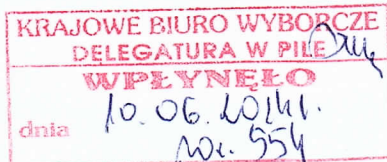 KRAJOWE BIURO WYBORCZE
DELEGATURA W PILE
WPŁYNĘŁO
dnia 10.06.
554